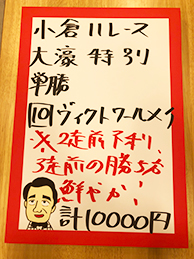 小倉11レース
大濠特別
単勝
10 ヴィクトワールメイ
※2走前不利、
3走前の勝ち方
鮮やか!
計10000円